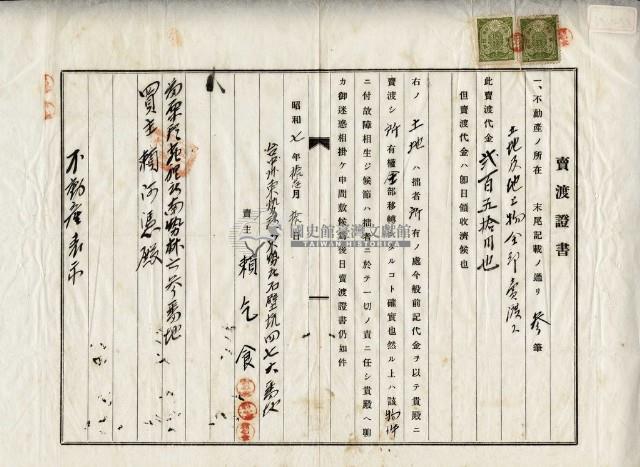 賣渡證書
一、不動産ノ所在 末尾記載ノ通リ 參筆
土地及地上物全部賣渡ス
此賣渡代金 貳百五拾円也
但賣渡代金ハ卽日領收濟候也
右ノ 土地 ハ拙者 所有ノ處今般前記代金ヲ以テ貴殿ニ
賣渡シ 所有權全部移轉 ルコト確實也然ル上ハ該物件
ニ付故障相生ジ候節ハ拙者ニ於テ一切ノ責ニ任シ貴殿ヘ聊
カ御迷惑相掛ケ申間敷候爲後日賣渡證書仍如件
昭和七年拾壱月拾 日
台中州東勢郡 東勢 石壁坑四七六番地
賣主 賴乞食
苗栗郡苑裡 南勢林六參番地
買主 賴阿憑殿
不動産表示
國史館臺灣文獻館
TAIWAN HISTORICA